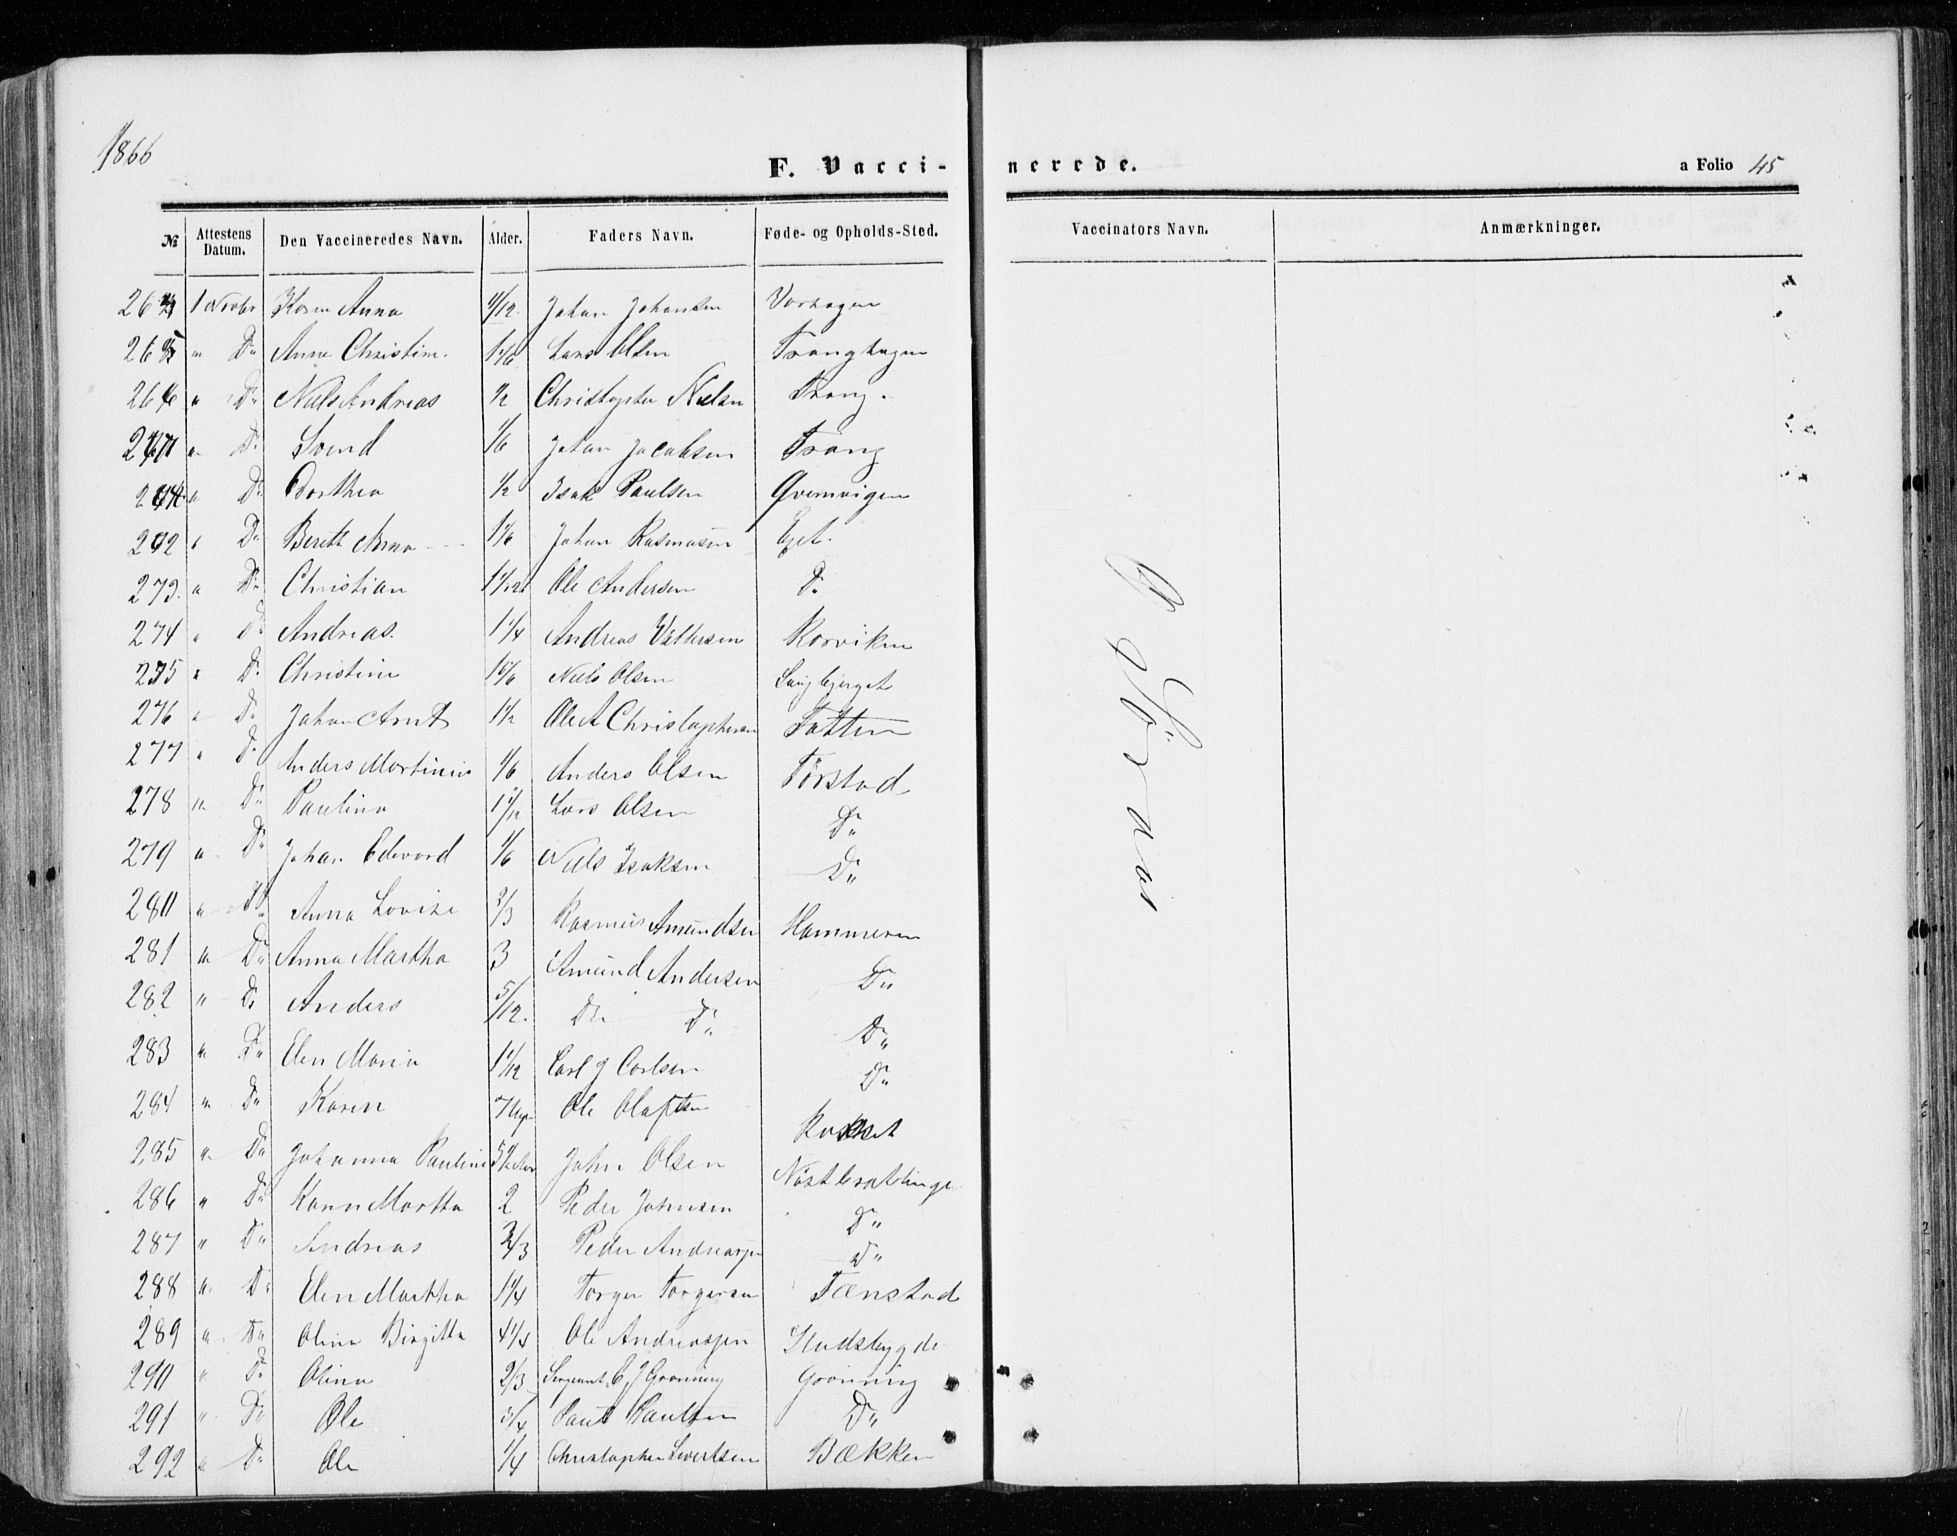 1866
F. Vacci- nerede. a Folio 45
№ Attestens Datum. Den Vaccineredes Navn. Alder. Faders Navn. Føde- og Opholds-Sted. Vaccinators Navn. Anmærkninger.
1 Novbr Karen Anna Johan Johansen
" Do Anne Christine Lars Olsen Tranghagen
" Do Niels Andreas 1/2 Christopher Nielsen Trang.
" Do Svend 1/6 Johan Jacobsen Trang
" Do Dorthea 1/2 Isak Paulsen Qvernvigen
" Do Berett Anna 1 1/6 Johan Rasmusen
273. " Do Christian 1 1/12 Ole Andersen Do
274 " Do Andreas. 1 1/4 Andreas Korsviken
275 " Do Christine Niels Olsen
276 " Do Johan Arnt 1 1/2 Ole A Christophersen
277 " Do Anders Martinus 1/6 Anders Olsen Tørstad
278 " Do Paulina Lars Olsen Do
279 " Do Johan Edevard 1/6 Niels Isaksen Do
280 " Do Anna Lovise 2/3 Rasmus Amundsen Hammeren
281 " Do Anna Martha 3 Amund Andersen Do
282 " Do Anders 5/12. Do Do Do
283 " Do Elen Maria 1 1/12 Carl J Carlsen Do
284 " Do Karen 7 Uger Ole Olafsen
285 " Do Johanna Pauline John Olsen
286 " Do Karen Martha 2 Peder Johnsen Do
287 " Do Andreas 2/3 Peder Andreasen Do
288 " Do Elen Martha 1 1/4 Torger Torgersen Tænstad
289 " Do Oline Birgitta 4 1/4 Ole Andreassen Stadsbygde
290 " Do Olina 2/3 Sergeant C. J Grønning Grønning
291 " Do Ole 3/4 Paul Paulsen Do
292 " Do Ole 1/4 Christopher Sivertsen Bækken